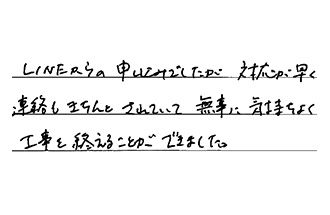 LINEからの申し込みでしたが 対応が早く
連絡もきちんとされていて 無事に 気持ちよく
工事を終えることができました。